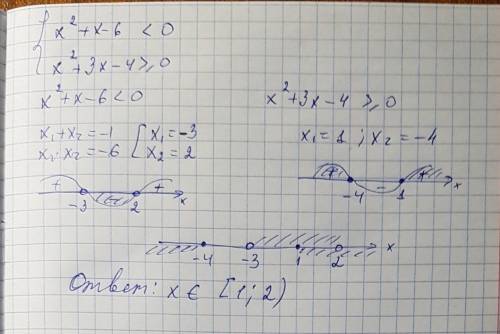 { x² + x - 6 < 0
x² + 3x - 4 ⩾ 0
x² + x - 6 < 0
x₁ + x₂ = -1 [ x₁ = -3
x₁ · x₂ = -6 x₂ = 2
+ - +
-3 2 x
x² + 3x - 4 ⩾ 0
x₁ = 1 ; x₂ = -4
+ - +
-4 1 x
-4 -3 1 2 x
Ответ: x ∈ [1; 2)